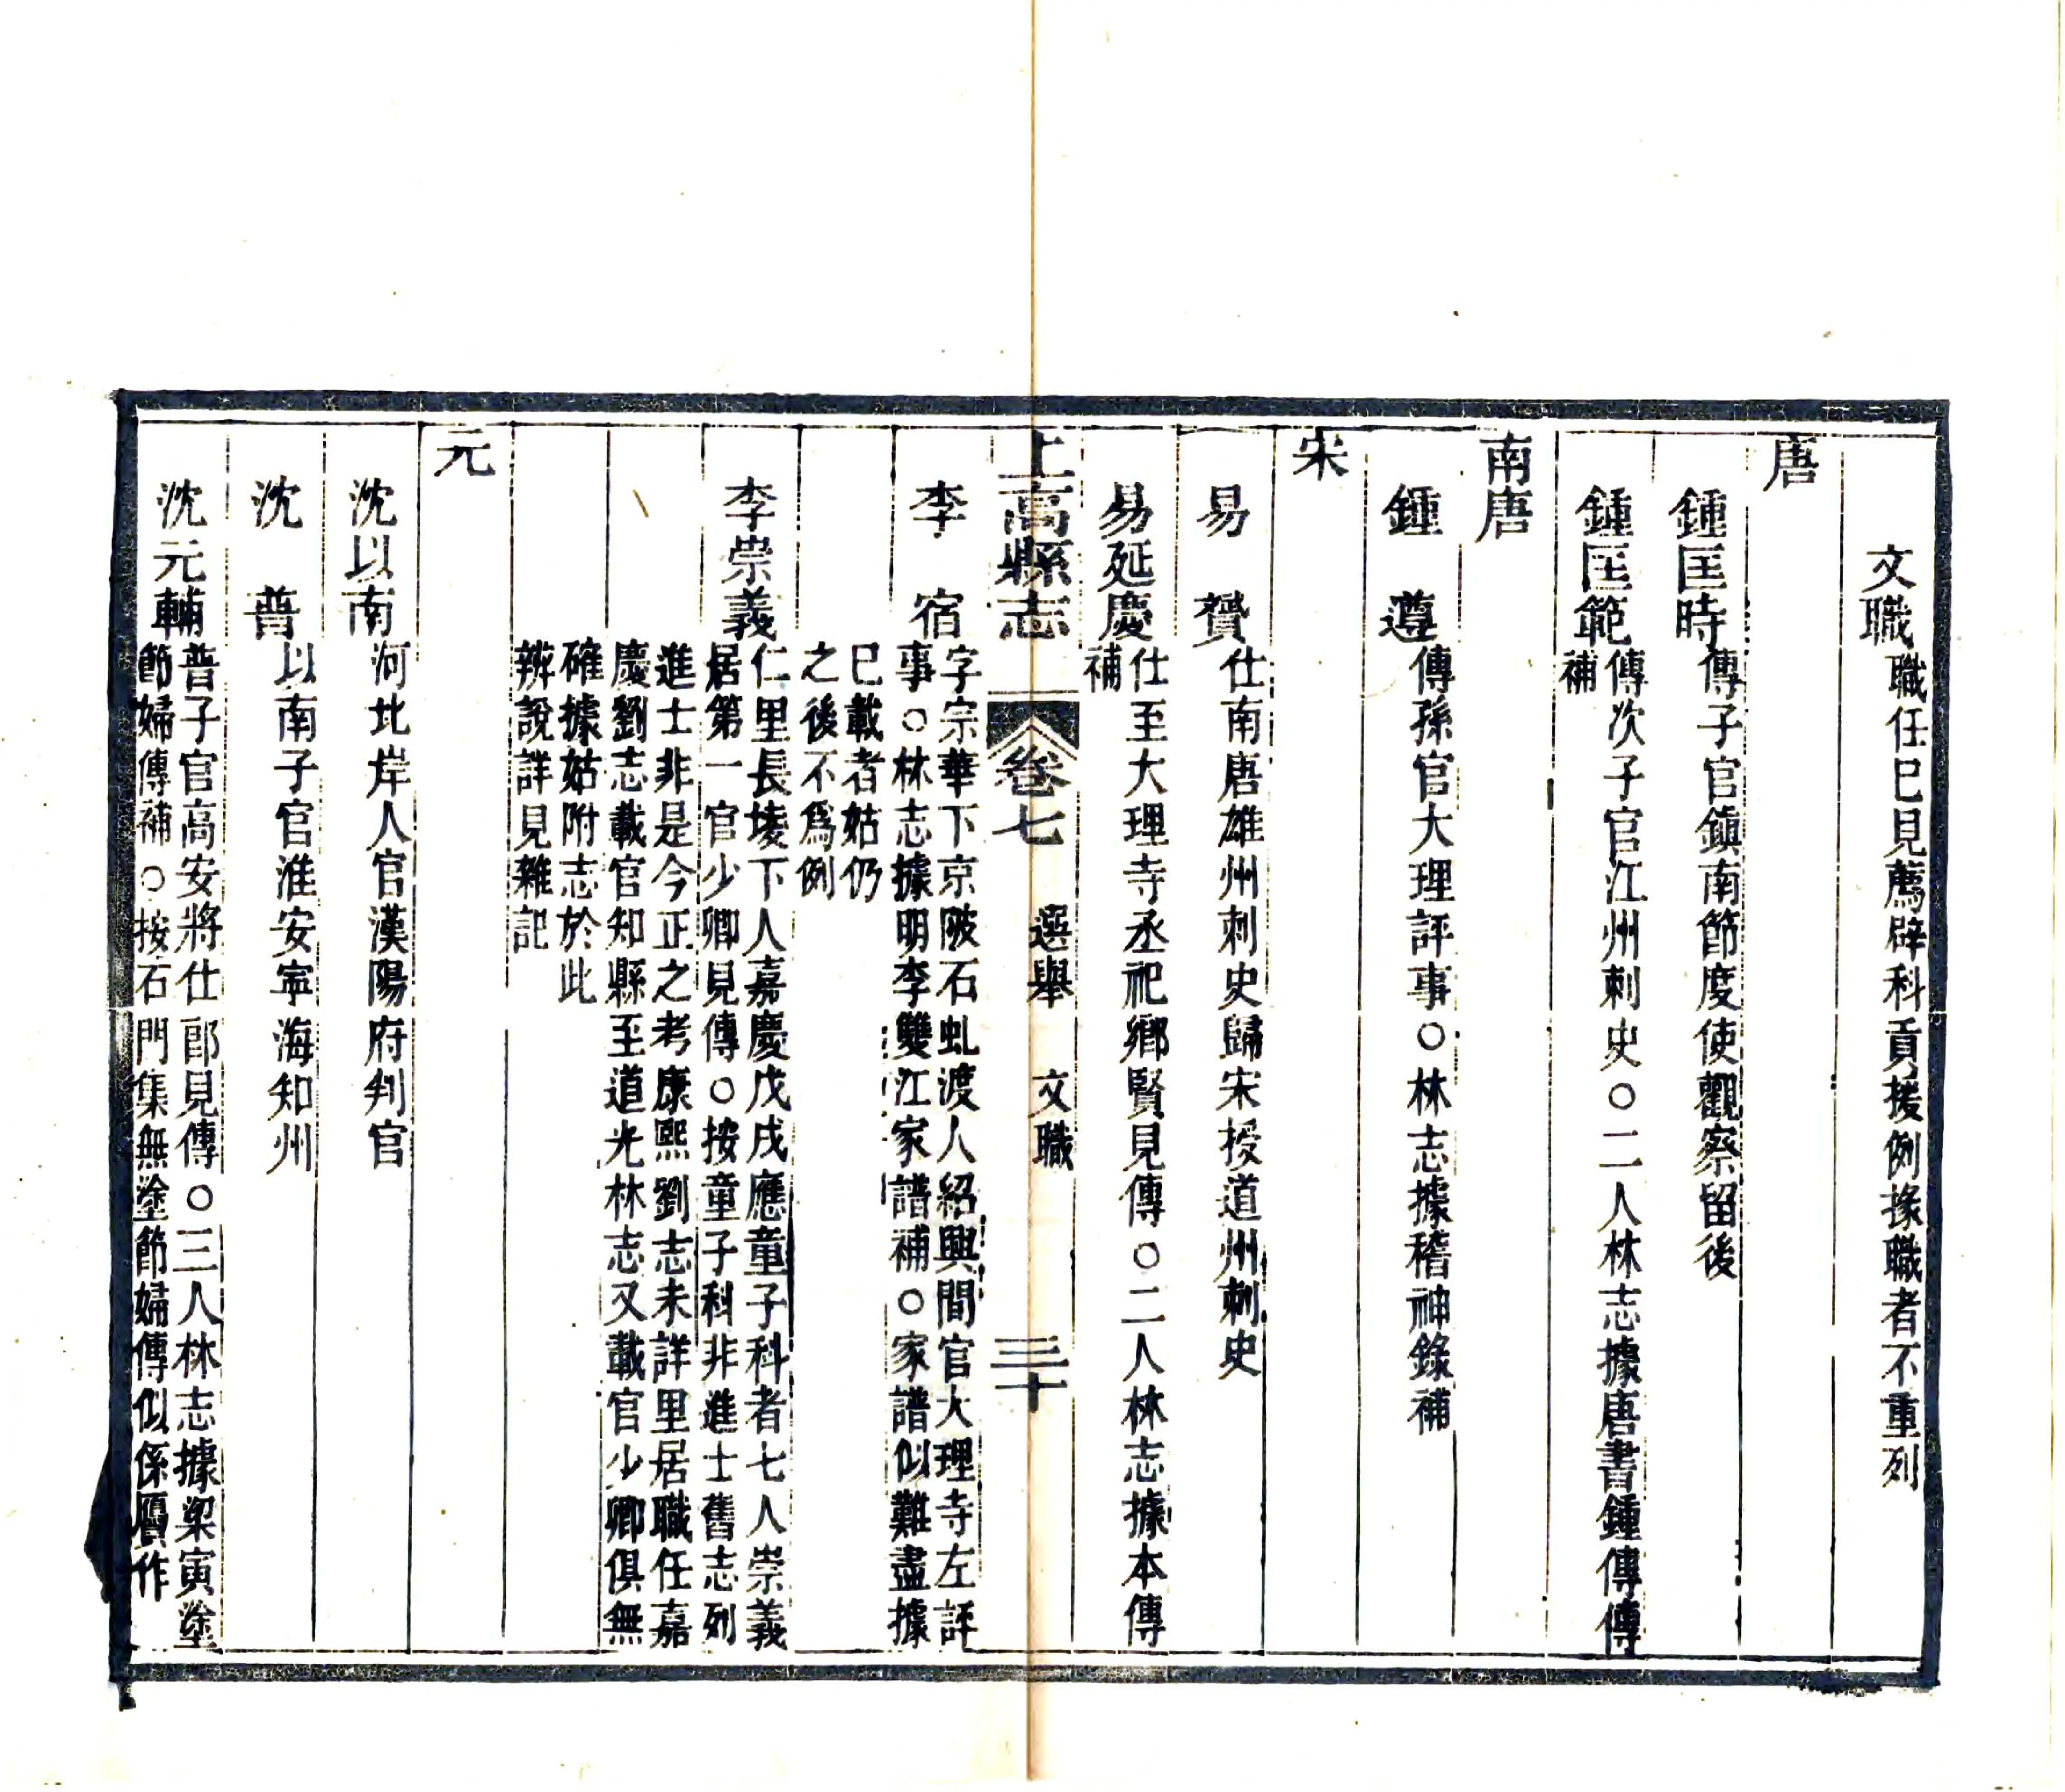 文職職任巳見薦辟科貢援例掾職者不重列
唐
鍾匡時傳子官鎭南節度使觀察留後
鍾匡範傳次子官江州刺史○二人林志據唐書鍾傳傳
補
南唐
鍾　遵傳孫官大理評事○林志據稽神錄補
宋
易　贇仕南唐雄州刺史歸宋授道州刺史
易延慶仕至大理寺丞祀鄉賢見傳○二人林志據本傳
補
上高縣志　卷七　選舉　文職　三十
李　宿字宗華下京陂石虬渡人紹興間官大理寺左評
事○林志據明李雙江家譜補○家譜似難盡據
巳載者姑仍
之後不爲例
李崇義仁里長堎下人嘉慶戊戌應童子科者七人崇義
居第一官少卿見傳○按童子科非進士舊志列
進士非是今正之考康熙劉志未詳里居職任嘉
慶劉志載官知縣至道光林志又載官少卿俱無
確據姑附志於此
辨說詳見雜記
元
沈以南河北岸人官漢陽府判官
沈　普以南子官淮安寧海知州
沈元輔普子官高安將仕郎見傳○三人林志據梁寅塗
節婦傳補○按石門集無塗節婦傳似係贗作